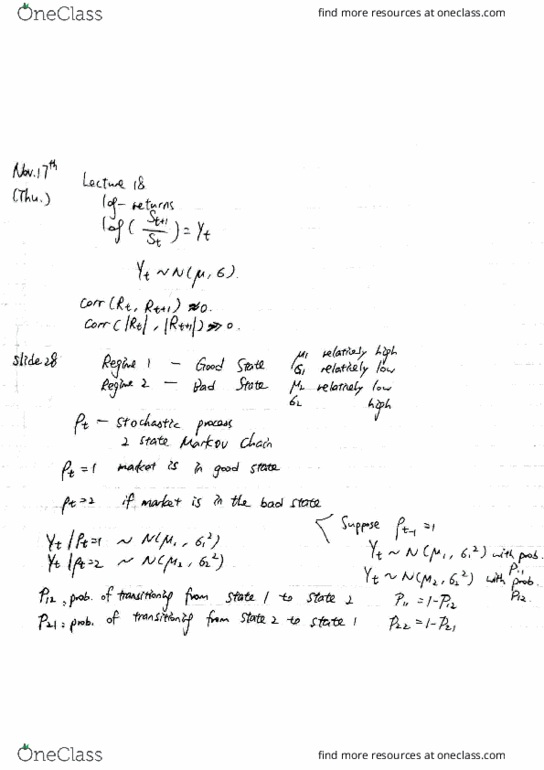 OneClass
find more resources at oneclass.com
Nov.17th
(Thu.)
Lecture 18
log-returns
log(St+1/St) = Yt
Yt ~ N(μ, σ).
corr(Rt, Rt+1) ≈ 0.
corr(|Rt|, |Rt+1|) >> 0.
slide 28
Regime 1 – Good State μ1 relatively high
σ1 relatively low
Regime 2 – Bad State μ2 relatively low
σ2 high
ρt – stochastic process
2 state Markov Chain
ρt = 1 market is in good state
ρt = 2 if market is in the bad state
Yt | ρt=1 ~ N(μ1, σ1²)
Yt | ρt=2 ~ N(μ2, σ2²)
Suppose ρt-1 = 1
Yt ~ N(μ1, σ1²) with prob. P11
Yt ~ N(μ2, σ2²) with prob. P12
P12: prob. of transitioning from state 1 to state 2 P11 = 1-P12
P21: prob. of transitioning from state 2 to state 1 P22 = 1-P21
OneClass
find more resources at oneclass.com